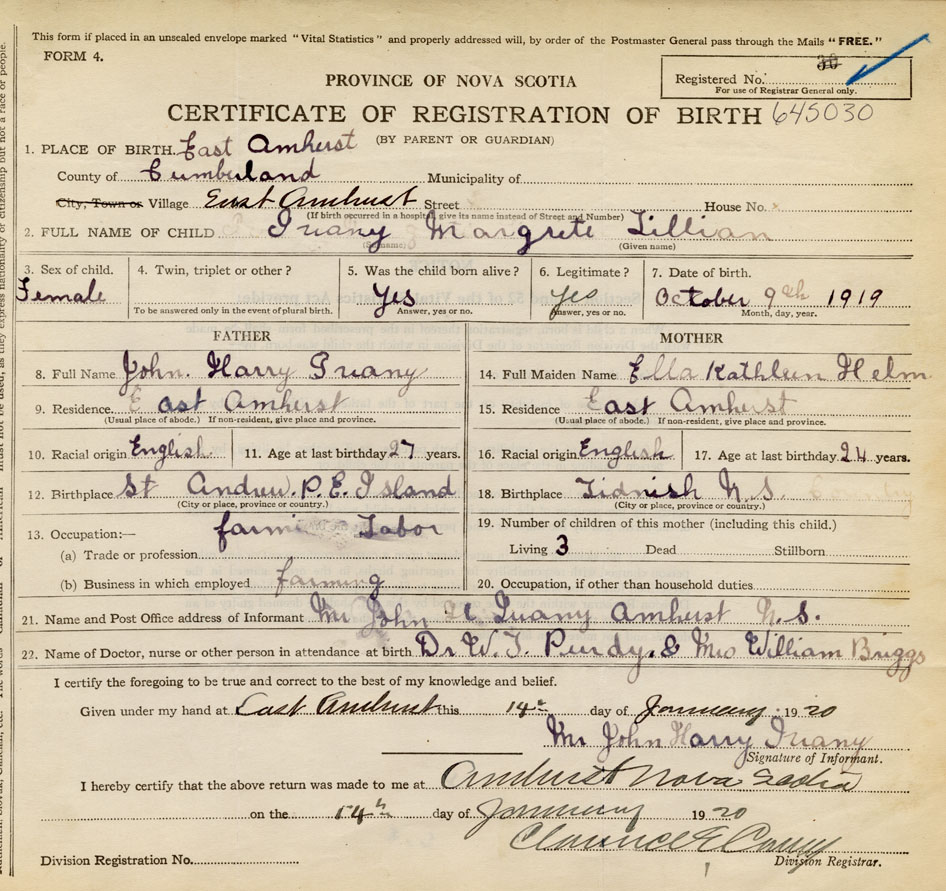 This form if placed in an unsealed envelope marked "Vital Statistics" and properly addressed will, by order of the Postmaster General pass through the Mails "FREE."
FORM 4.
PROVINCE OF NOVA SCOTIA
Registered No.
For use of Registrar General only.
CERTIFICATE OF REGISTRATION OF BIRTH 645030
(BY PARENT OR GUARDIAN)
1. PLACE OF BIRTH. East Amherst
County of Cumberland Municipality of
City, Town or Village East Amherst Street House No.
(If birth occurred in a hospital, give its name instead of Street and Number)
2. FULL NAME OF CHILD Margrete Lillian
(Surname) (Given name)
3. Sex of child. 4. Twin, triplet or other? 5. Was the child born alive? 6. Legitimate? 7. Date of birth.
Female Yes yes October 9th 1919
To be answered only in the event of plural birth. Answer, yes or no. Answer, yes or no. Month, day, year.
FATHER MOTHER
8. Full Name John. Harry 14. Full Maiden Name Ella Kathleen Helm
9. Residence. East Amherst 15. Residence East Amherst
(Usual place of abode.) If non-resident, give place and province. (Usual place of abode.) If non-resident, give place and province.
10. Racial origin English 11. Age at last birthday 27 years. 16. Racial origin English 17. Age at last birthday 24 years.
12. Birthplace St Andrew. P. E. Island 18. Birthplace Tidnish N. S.
(City or place, province or country.) (City or place, province or country.)
13. Occupation:— Labor 19. Number of children of this mother (including this child.)
(a) Trade or profession Living 3 Dead Stillborn
(b) Business in which employed farming 20. Occupation, if other than household duties
21. Name and Post Office address of Informant Mr John H Amhust N. S.
22. Name of Doctor, nurse or other person in attendance at birth Dr W. T. Purdy. & Mrs William Briggs
I certify the foregoing to be true and correct to the best of my knowledge and belief.
Given under my hand at East Amhurst this 14th day of January 1920
Mr John Harry
Signature of Informant.
I hereby certify that the above return was made to me at Amhurst Nova Scotia
on the 14th day of January 1920
Clarence E
Division Registration No. Division Registrar.